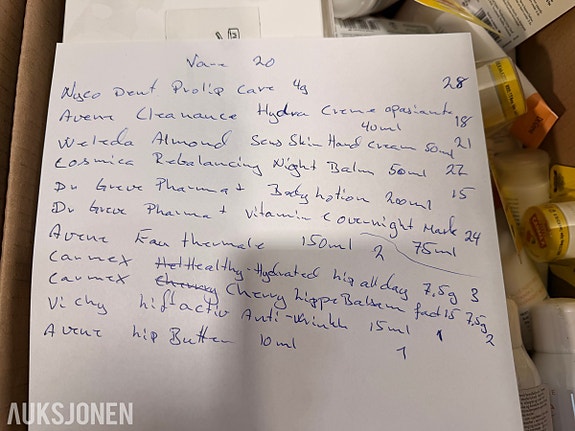 Vare 20
Nyco Dent Prolip Care 4g 28
Avene Cleanance Hydra Creme apaisante 18
40ml
Weleda Almond Sens Skin Hand Cream 50ml 21
Cosmica Rebalancing Night Balm 50ml 22
Dr Greve Pharma + Body Lotion 200ml 15
Dr Greve Pharma + Vitamin C overnight Mask 24
75ml
Avene Eau thermale 150ml 2
Carmex Healthy-Hydrated Lip all day 7,5g 3
Carmex Cherry Lippe Balsam fad 15 7,5g
2
Vichy Liftactiv Anti-wrinkle 15ml 1
Avene Lip Butter 10ml 1
AUKSJONEN